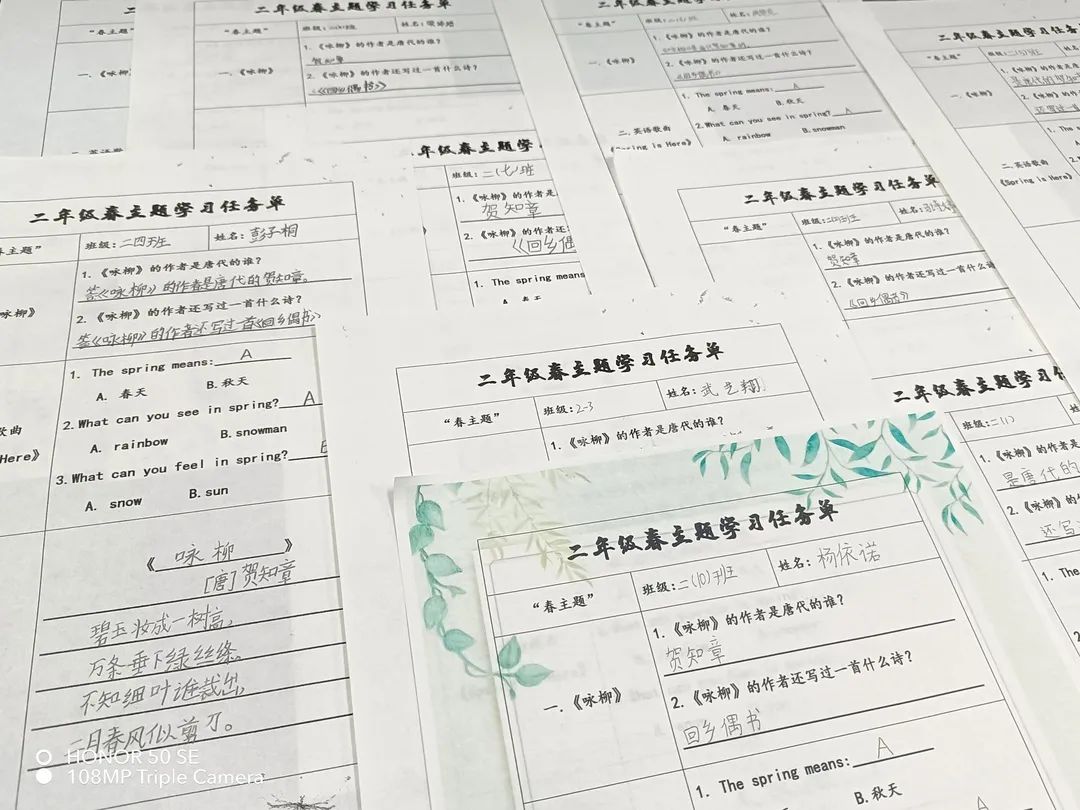 二年级春主题学习任务单
“春主题”
班级:
姓名:
1.《咏柳》的作者是唐代的谁?
贺知章
一.《咏柳》
2.《咏柳》的作者还写过一首什么诗?
《回乡偶书》
二年级春主题学习任务单
“春主题”
班级:
姓名:
一.《咏柳》
2.《咏柳》的作者还写过一首什么诗?
《回乡偶书》
1. The spring means: A
A. 春天 B.秋天
2.What can you see in spring? A
A. rainbow B.snowman
二.英语歌曲
《Spring is Here》
二年级春主题学习任务单
“春主题”
1.《咏柳》的作者是唐
一.《咏柳》
2.《咏柳》的作
还写过一首
二.英语歌曲
《Spring is Here》
年级春主题学
班级:二(七)班
1.《咏柳》的作者是
贺知章
2.《咏柳》的作者还
《回乡偶
1. The spring means
二年级春主题学习任务单
春主题”
班级:二四班
姓名:彭子桐
1.《咏柳》的作者是唐代的谁?
答《咏柳》的作者是唐代的贺知章。
咏柳》
2.《咏柳》的作者还写过一首什么诗?
答《咏柳》的作者还写过一首《回乡偶书》
1. The spring means: A
A. 春天 B.秋天
2.What can you see in spring? A
A. rainbow B.snowman
歌曲
Here》
3.What can you feel in spring?
A. snow B.sun
《 咏柳 》
[唐]贺知章
碧玉妆成一树高,
万条垂下绿丝绦。
不知细叶谁裁出,
二月春风似剪刀。
二年级春主题学习任务单
“春主题”
班级:
姓名:
1.《咏柳》的作者是唐代的谁?
贺知章
一.《咏柳》
2.《咏柳》的作者还写过一首什么诗?
《回乡偶书》
二年级春主题学习任务单
“春主题”
班级:2-3
姓名:武艺翔
1.《咏柳》的作者是唐代的谁?
二年级春主题学习
班级:二(1)
1.《咏柳》的作者是
是唐代的
2.《咏柳》的作
还写
1. The
二年级春主题学习任务单
“春主题”
班级:二(10)班
姓名:杨依诺
1.《咏柳》的作者是唐代的谁?
贺知章
一.《咏柳》
2.《咏柳》的作者还写过一首什么诗?
回乡偶书
1. The spring means: A
B.秋天
HONOR 50 SE
108MP Triple Camera